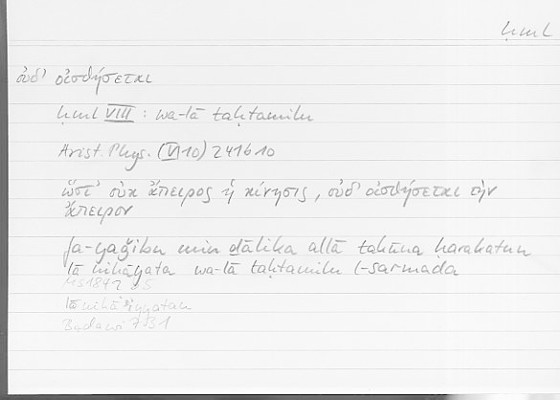 ḥml
οὐδ' οἰσθήσεται
ḥml VIII : wa-lā taḥtamilu
Arist. Phys. (VI 10) 241b10
ὥστ' οὐκ ἄπειρος ἡ κίνησις, οὐδ' οἰσθήσεται τὴν
ἄπειρον
fa-yaǧibu min ḏālika allā takūna ḥarakatun
lā nihāyata wa-lā taḥtamilu l-sarmada
lā nihāʾiyyatan
Badawi 731